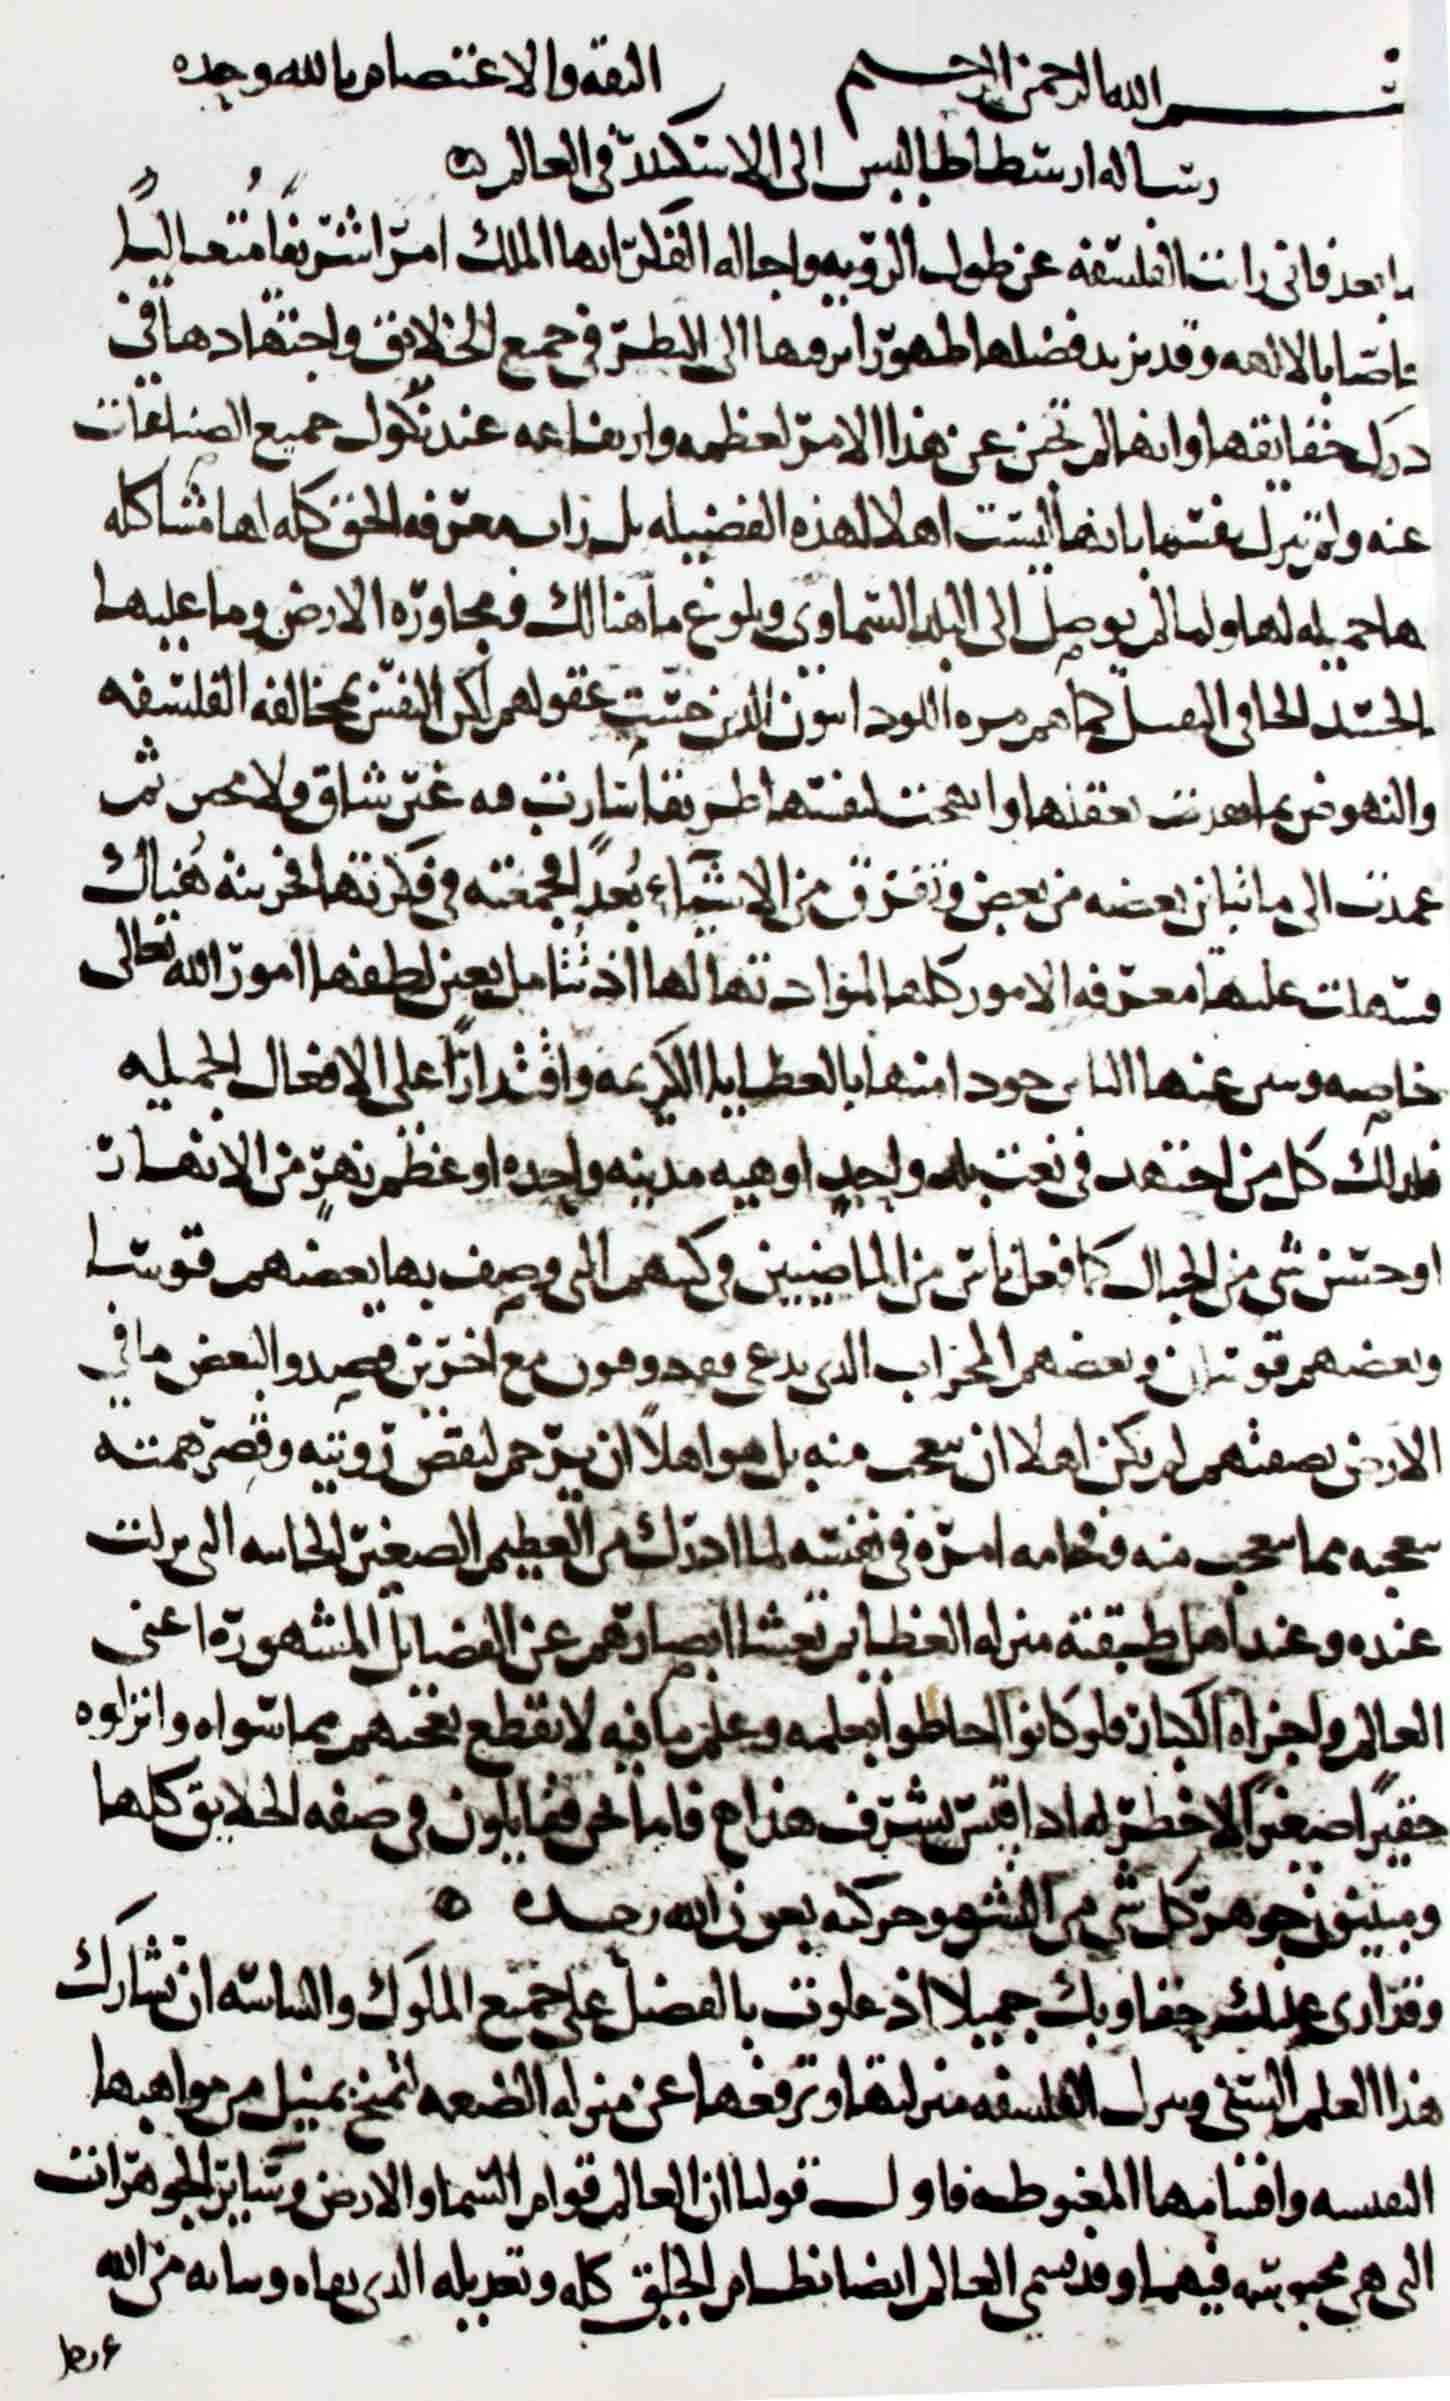 بسم الله الرحمن الرحيم الثقه والاعتصام بالله وحده
رساله ارسطاطاليس الى الاسكندر في العالم
اما بعد فاني رايت الفلسفه عن طول الرويه واجاله الفكر ايها الملك امرا شريفا متعاليا
خاصا بالالهه وقد يزيد فضلها ظهورا برومها الى النظر في جميع الخلايق واجتهادها في
درك حقايقها وانها لم تخن عن هذا الامر لعظمه وارتفاعه عند نكول جميع الصناعات
عنه ولم تنزل نفسها بانها ليست اهلا لهذه الفضيله بل رات معرفه الحق كله لها مشاكله
جميله لها ولما لم يوصل الى البلد السماوي وبلوغ ما هنالك ومجاوزه الارض وما عليها
بالجسد الجافي الذين خست عقولهم لكن النفس بمخالفه الفلسفه
والنهوض بما بعقلها وانتهجت لنفسها طريقا سارت فيه غير شاق ولا ثم
عمدت الى ما تباين بعضه من بعض وتفرق من الاشياء بعدا فجمعته في فكرتها هناك
فسهلت عليها معرفه الامور كلها لمؤاتاتها لها اذ تتامل بعين لطفها امور الله تعالى
خاصه عنها الناس جودا منها بالعطايا الكريمه واقتدارا على الافعال الجميله
فلذلك كل من اجتهد في نعت بلد واحد او هيه مدينه واحده او عظم نهر من الانهار
او حسن شي من الجبال كما فعل ناس من الماضيين في كتبهم التي وصف بها بعضهم قوسا
وبعضهم وبعضهم المحراب الذي يدعى مع اخرين قصدوا لبعض ما في
الارض بصفتهم لم يكن اهلا ان يتعجب منه بل هو اهلا ان يرحم لنقص رويته وقصر همته
تعجبه مما تعجب منه وفخامه امره في نفسه لما ادرك من العظيم الصغير الحاسه التي نزلت
عنده وعند اهل طبقته منزله العظايم تعشا ابصارهم عن الفضايل المشهوره اعني
العالم واجزاه الكبار فلو كانوا احاطوا بعلمه وعلم ما فيه لانقطع تعجبهم مما سواه وانزلوه
حقيرا صغيرا لا خطر له اذا قيس بشرف هذا فاما نحن فقايلون في صفه الخلايق كلها
ومبينون جوهر كل شي من النشو وحركته بعون الله وحده
وقد ارى عليك حقا وبك جميلا اذ علوت بالفضل على جميع الملوك والساسه ان تشارك
هذا العلم السني وتنزل الفلسفه منزلتها وترفعها عن منزله الضعه لتمنح بنيل من مواهبها
النفيسه واقسامها المغبوطه فاول قولنا ان العالم قوام السما والارض وساير الجوهرات
التي هي محبوسه فيهما وقد يسمى العالم ايضا نظام الخلق كله وتعديله الذي بقاه وثباته من الله